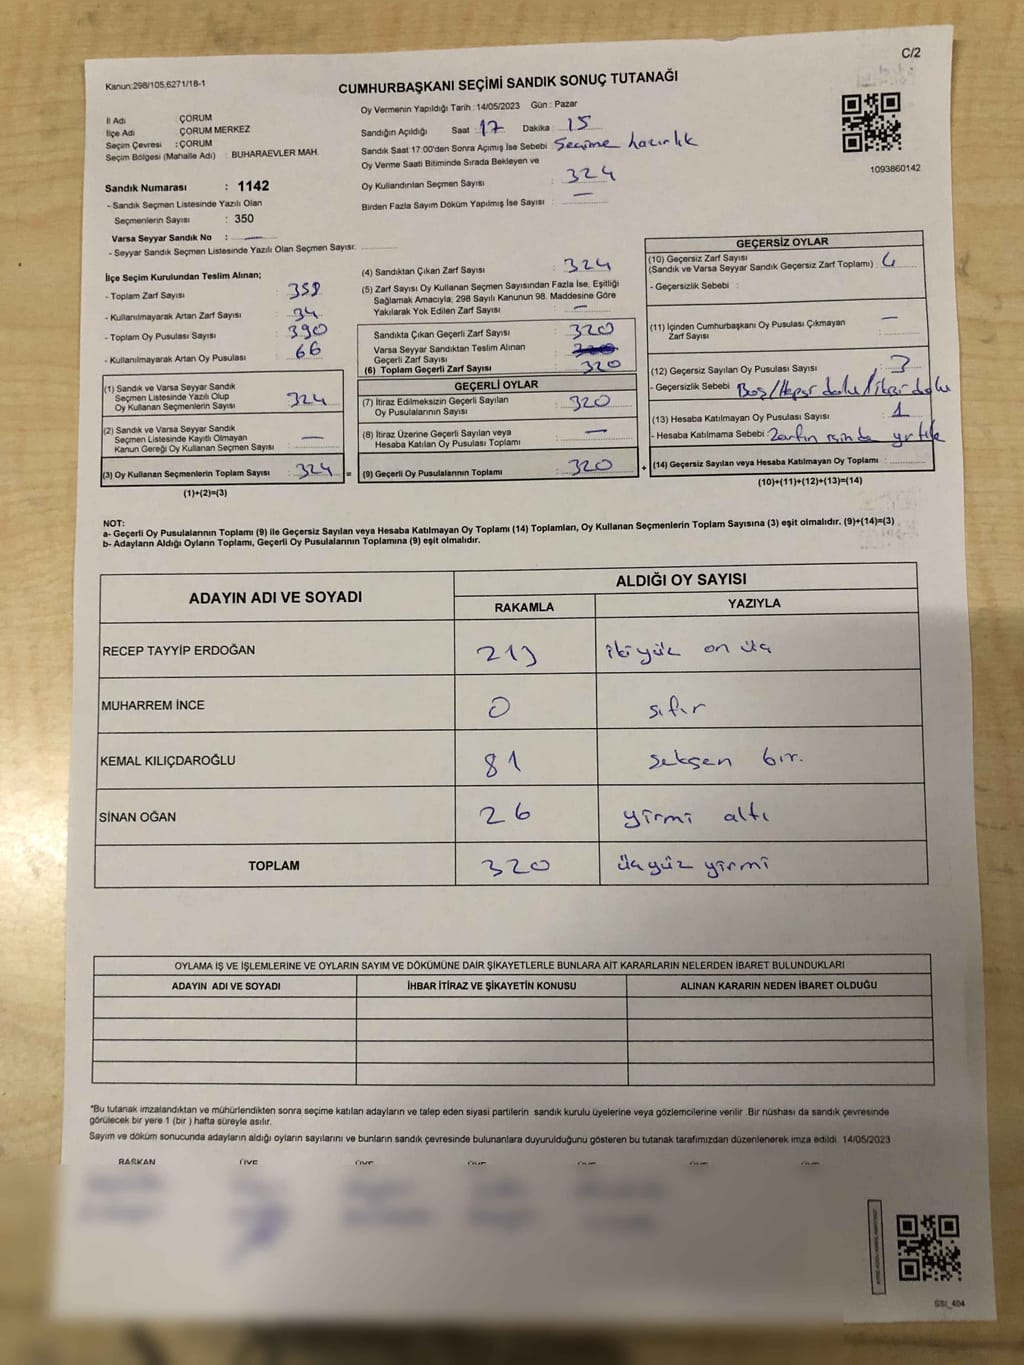 C/2
Kanun:298/105;6271/18-1
CUMHURBAŞKANI SEÇİMİ SANDIK SONUÇ TUTANAĞI
İl Adı : ÇORUM
İlçe Adı : ÇORUM MERKEZ
Seçim Çevresi : ÇORUM
Seçim Bölgesi (Mahalle Adı) : BUHARAEVLER MAH.
Sandık Numarası : 1142
- Sandık Seçmen Listesinde Yazılı Olan
Seçmenlerin Sayısı : 350
Varsa Seyyar Sandık No : —
- Seyyar Sandık Seçmen Listesinde Yazılı Olan Seçmen Sayısı:
Oy Vermenin Yapıldığı Tarih : 14/05/2023 Gün : Pazar
Sandığın Açıldığı Saat 17 Dakika 15
Sandık Saat 17:00'den Sonra Açımış İse Sebebi : Seçime hazırlık
Oy Verme Saati Bitiminde Sırada Bekleyen ve
Oy Kullandırılan Seçmen Sayısı : 324
Birden Fazla Sayım Döküm Yapılmış İse Sayısı : —
1093860142
İlçe Seçim Kurulundan Teslim Alınan;
- Toplam Zarf Sayısı : 358
- Kullanılmayarak Artan Zarf Sayısı : 34
- Toplam Oy Pusulası Sayısı : 390
- Kullanılmayarak Artan Oy Pusulası : 66
(1) Sandık ve Varsa Seyyar Sandık
Seçmen Listesinde Yazılı Olup
Oy Kullanan Seçmenlerin Sayısı : 324
(2) Sandık ve Varsa Seyyar Sandık
Seçmen Listesinde Kayıtlı Olmayan
Kanun Gereği Oy Kullanan Seçmen Sayısı : —
(3) Oy Kullanan Seçmenlerin Toplam Sayısı : 324 =
(1)+(2)=(3)
(4) Sandıktan Çıkan Zarf Sayısı : 324
(5) Zarf Sayısı Oy Kullanan Seçmen Sayısından Fazla İse, Eşitliği
Sağlamak Amacıyla, 298 Sayılı Kanunun 98. Maddesine Göre
Yakılarak Yok Edilen Zarf Sayısı : —
Sandıkta Çıkan Geçerli Zarf Sayısı : 320
Varsa Seyyar Sandıktan Teslim Alınan
Geçerli Zarf Sayısı
(6) Toplam Geçerli Zarf Sayısı : 320
GEÇERLİ OYLAR
(7) İtiraz Edilmeksizin Geçerli Sayılan
Oy Pusulalarının Sayısı : 320
(8) İtiraz Üzerine Geçerli Sayılan veya
Hesaba Katılan Oy Pusulası Toplamı : —
(9) Geçerli Oy Pusulalarının Toplamı : 320 +
GEÇERSİZ OYLAR
(10) Geçersiz Zarf Sayısı
(Sandık ve Varsa Seyyar Sandık Geçersiz Zarf Toplamı) :
- Geçersizlik Sebebi :
(11) İçinden Cumhurbaşkanı Oy Pusulası Çıkmayan
Zarf Sayısı : —
(12) Geçersiz Sayılan Oy Pusulası Sayısı : 3
- Geçersizlik Sebebi : Boş/Hepsi dolu/ikisi dolu
(13) Hesaba Katılmayan Oy Pusulası Sayısı : 1
- Hesaba Katılmama Sebebi : Zarfın içinde yırtık
(14) Geçersiz Sayılan veya Hesaba Katılmayan Oy Toplamı :
(10)+(11)+(12)+(13)=(14)
NOT:
a- Geçerli Oy Pusulalarının Toplamı (9) ile Geçersiz Sayılan veya Hesaba Katılmayan Oy Toplamı (14) Toplamları, Oy Kullanan Seçmenlerin Toplam Sayısına (3) eşit olmalıdır. (9)+(14)=(3)
b- Adayların Aldığı Oyların Toplamı, Geçerli Oy Pusulalarının Toplamına (9) eşit olmalıdır.
ADAYIN ADI VE SOYADI
ALDIĞI OY SAYISI
RAKAMLA YAZIYLA
RECEP TAYYİP ERDOĞAN 213 ikiyüz on üç
MUHARREM İNCE 0 sıfır
KEMAL KILIÇDAROĞLU 81 seksen bir.
SİNAN OĞAN 26 yirmi altı
TOPLAM 320 üçyüz yirmi
OYLAMA İŞ VE İŞLEMLERİNE VE OYLARIN SAYIM VE DÖKÜMÜNE DAİR ŞİKAYETLERLE BUNLARA AİT KARARLARIN NELERDEN İBARET BULUNDUKLARI
ADAYIN ADI VE SOYADI İHBAR İTİRAZ VE ŞİKAYETİN KONUSU ALINAN KARARIN NEDEN İBARET OLDUĞU
*Bu tutanak imzalandıktan ve mühürlendikten sonra seçime katılan adayların ve talep eden siyasi partilerin sandık kurulu üyelerine veya gözlemcilerine verilir .Bir nüshası da sandık çevresinde
görülecek bir yere 1 (bir ) hafta süreyle asılır.
Sayım ve döküm sonucunda adayların aldığı oyların sayılarını ve bunların sandık çevresinde bulunanlara duyurulduğunu gösteren bu tutanak tarafımızdan düzenlenerek imza edildi. 14/05/2023
BAŞKAN ÜYE ÜYE ÜYE ÜYE ÜYE ÜYE
SSI_404